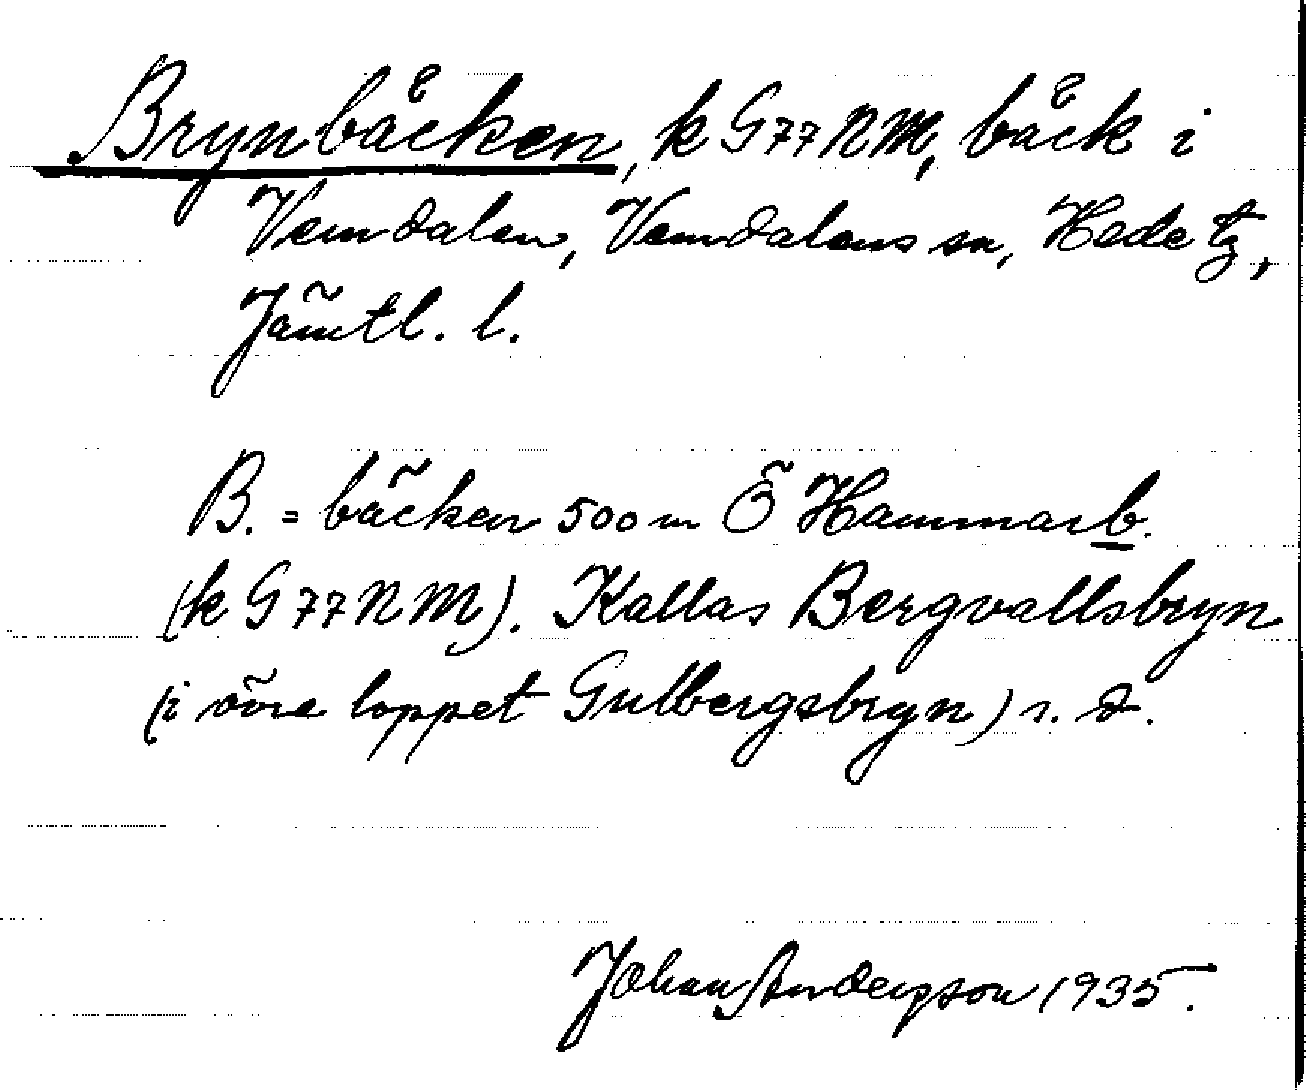 Brynbäcken, k G77NM, bäck i
Vemdalen, Vemdalens sn, Hede tg,
Jämtl. l.
B. = bäcken 500 m Ö Hammarb.
(k G77NM). Kallas Bergvallsbryn
(i övre loppet Gulbergsbryn) r. d.
Johan Anderson 1935.